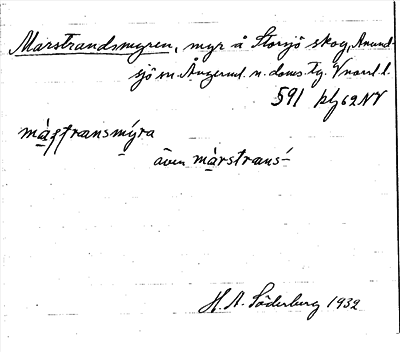 Marstrandsmyren, myr å Storsjö skog, Anund-
sjö sn. Ångerml. n. doms. tg. Vnorrl. l.
591 kbl 62 NV
màṣtransmýra
även màrstrans-́
H. A. Söderberg 1932